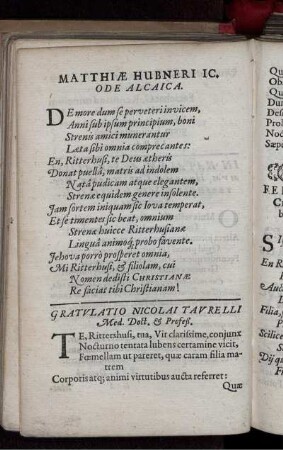 MATTHIÆ HUBNERI IC.
ODE ALCAICA.
DE more dum se perveteri invicem,
Anni sub ipsum principium, boni
Strenis amici munerantur
Læta sibi omnia comprecantes:
En, Ritterhusi, te Deus ætheris
Donat puellâ, matris ad indolem
Natâ pudicam atque elegantem,
Strenæ equidem genere insolente.
Jam sortem iniquam sic Iova temperat,
Et se timentes sic beat, omnium
Strenæ huicce Rittershusianæ
Linguâ animoq; probo favente.
Jehova porrò prosperet omnia,
Mi Ritterhusi, & filiolam, cui
Nomen dedisti CHRISTIANÆ
Re faciat tibi Christianam!
GRATVLATIO NICOLAI TAVRELLI
Med. Doct. & Profess.
TE, Rittershusi, tua, Vir clarissime, conjunx
Nocturno tentata lubens certamine vicit,
Fœmellam ut pareret, quæ caram filia matrem
Corporis atq; animi virtutibus aucta referret:
Quæ